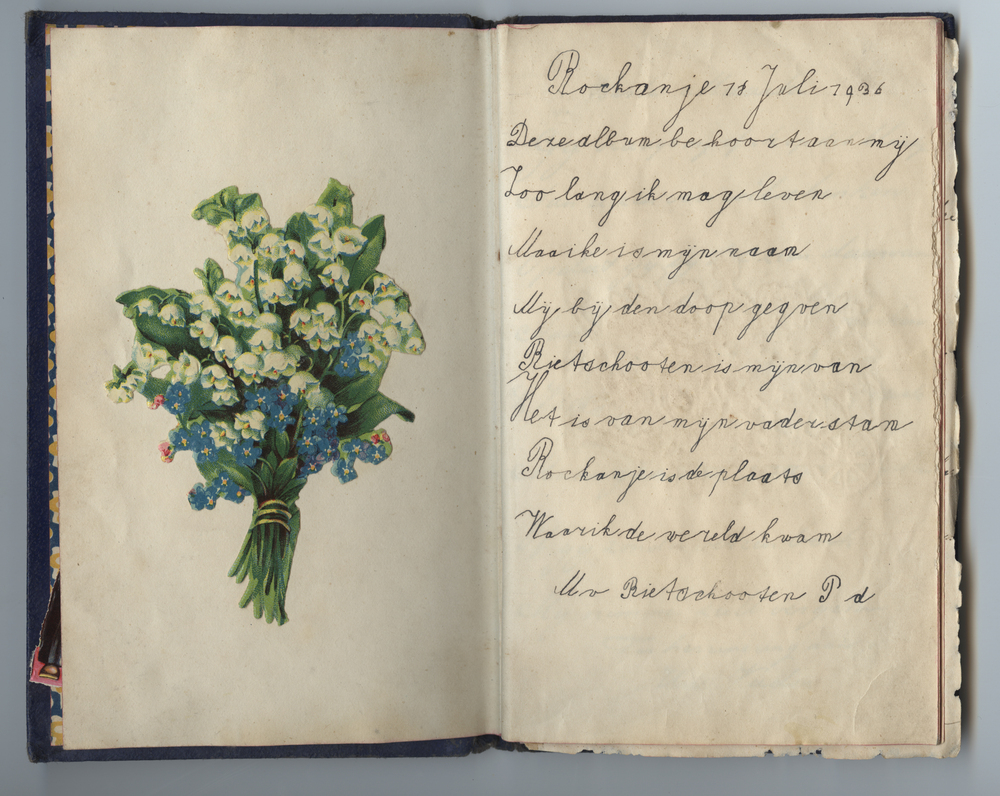 Rockanje 18 Juli 1936
Deze album be hoort aan mij
Zoo lang ik mag leven
Maaike is mijn naam
Mij bij den doop gegven
Rietschooten is mijn van
Het is van mijn vader stam
Rockanje is de plaats
Waar ik de wereld kwam
M v Rietschooten P d